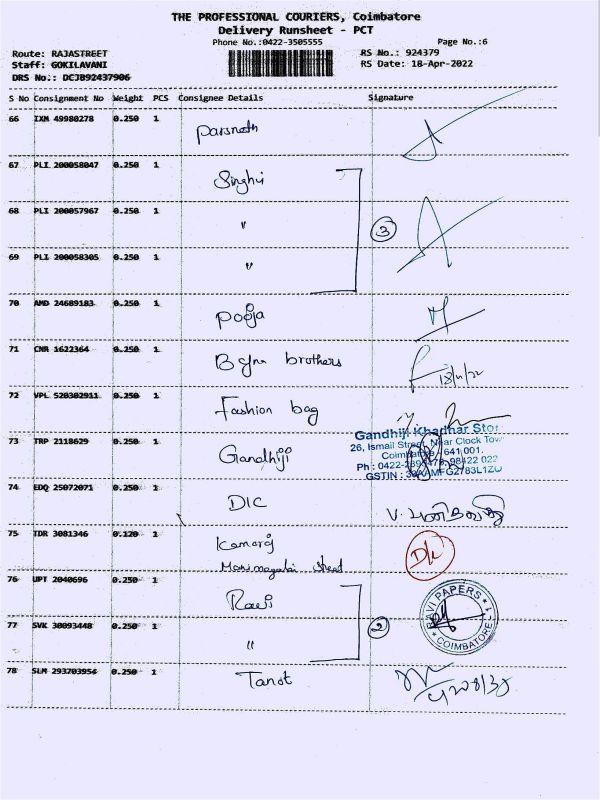 THE PROFESSIONAL COURIERS, Coimbatore
Delivery Runsheet - PCT
Phone No.:0422-3505555
Page No.:6
Route: RAJASTREET
RS No.: 924379
Staff: GOKILAVANI
RS Date: 18-Apr-2022
DRS No.: DCJB92437906
S No Consignment No Weight PCS Consignee Details Signature
66 IXM 49980278 0.250 1 Parsnath
67 PLI 200058047 0.250 1 Singhvi
68 PLI 200057967 0.250 1 "
3
69 PLI 200058305 0.250 1 "
70 AMD 24689183 0.250 1 Pooja
71 CNR 1622364 0.250 1 brothers
72 VPL 520302911 0.250 1 Fashion bag
73 TRP 2118629 0.250 1 Gandhiji
Gandhiji Khadhar Stor
26, Ismail Street, Near Clock Tow
Coimbatore - 641 001.
GSTIN :
74 EDQ 25072071 0.250 1 DIC
75 TDR 3081346 0.120 1 Kamaraj
D/L
76 UPT 2040696 0.250 1 Ravi
RAVI PAPERS
COIMBATORE-1
77 SVK 30093448 0.250 1 "
2
78 SLM 293703954 0.250 1 Tanot